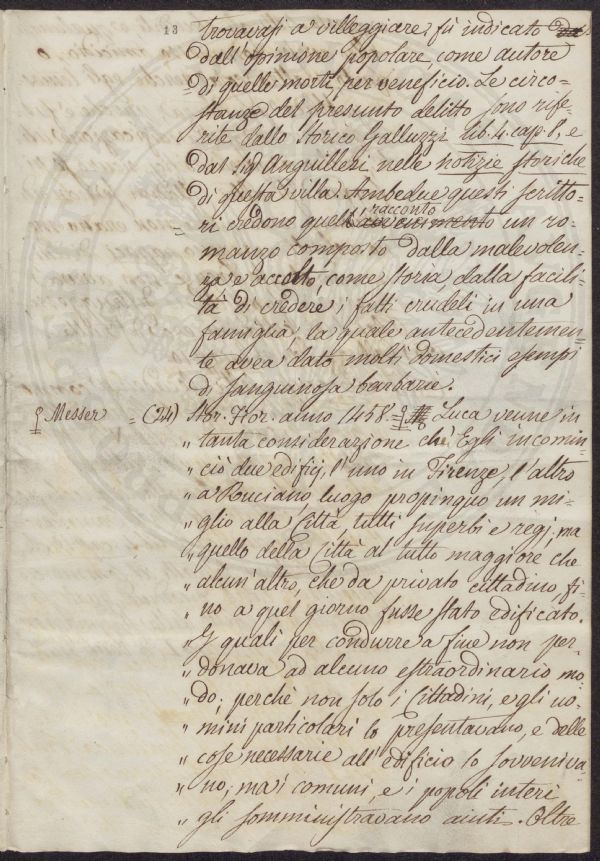 13
trovavasi a villeggiare, fù indicato
dall'opinione popolare, come autore
di quelle morti per veneficio. Le circo-
stanze del presunto delitto sono rife-
rite dallo Storico Galluzzi lib. 4. cap. 1. e
dal Sig. Anguilleri nelle notizie storiche
di questa villa. Ambedue questi scritto-
racconto
ri credono quell'avvenimento un ro-
manzo composto dalla malevolen-
za e accolto, come storia, dalla facili-
tà di credere i fatti crudeli in una
famiglia, la quale antecedentemen-
te avea dato molti domestici esempi
di sanguinosa barbarie.
Messer = (24) Stor. Fior. anno 1458. = Luca venne in
tanta considerazione che Egli incomin-
ciò due edifizj, l'uno in Firenze, l'altro
" a Ruciano, luogo propinquo un mi-
" glio alla Città, tutti superbi e regj; ma
" quello della Città al tutto maggiore che
" alcun'altro, che da privato cittadino fi-
" no a quel giorno fusse stato edificato.
" I quali per condurre a fine non per-
" donava ad alcuno estraordinario mo-
" do; perchè non solo i Cittadini, e gli uo-
" mini particolari lo presentavano, e delle
" cose necessarie all'edificio lo sovveniva-
" no; ma i comuni, e i popoli interi
" gli somministravano aiuti. Oltre